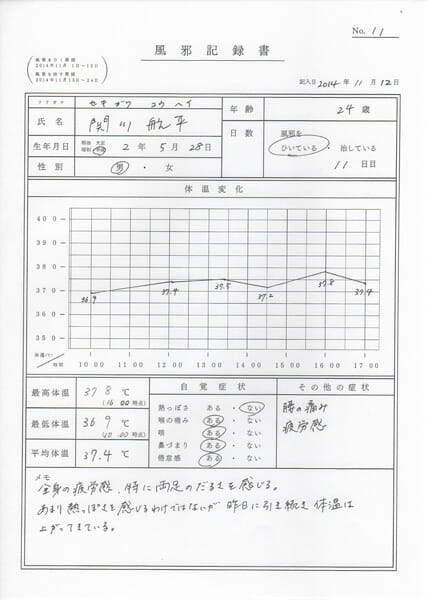 No. 11
風邪をひく期間
2014年11月 1日〜12日
風邪を治す期間
2014年11月13日〜24日
風邪記録書
記入日 2014 年 11 月 12 日
フリガナ セキガワ コウヘイ
氏名 関川 航平
生年月日 明治 大正 昭和 平成 2 年 5 月 28 日
性別 男 ・ 女
年齢 24 歳
日数 風邪を
ひいている ・ 治している
11 日目
体温変化
40 0
39 0
38 0
37 0
36 0
35 0
36.9 37.4 37.5 37.2 37.8 37.4
体温(℃)/時間 10 00 11 00 12 00 13 00 14 00 15 00 16 00 17 00
最高体温 37 8 ℃
(16 00 時点)
最低体温 36 9 ℃
(10 00 時点)
平均体温 37.4 ℃
自覚症状
熱っぽさ ある ・ ない
喉の痛み ある ・ ない
咳 ある ・ ない
鼻づまり ある ・ ない
倦怠感 ある ・ ない
その他の症状
腰の痛み
疲労感
メモ
全身の疲労感、特に両足のだるさを感じる。
あまり熱っぽさを感じるわけではないが 昨日に引き続き 体温は
上がってきている。